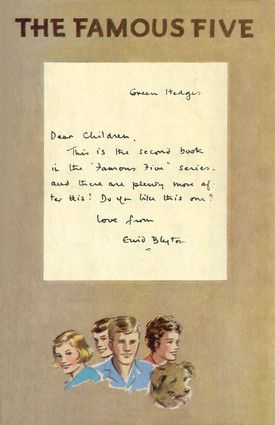 THE FAMOUS FIVE
Green Hedges
Dear Children,
This is the second book
in the "Famous Five" series.
and there are plenty more af
ter this! Do you like this one?
Love from
Enid Blyton